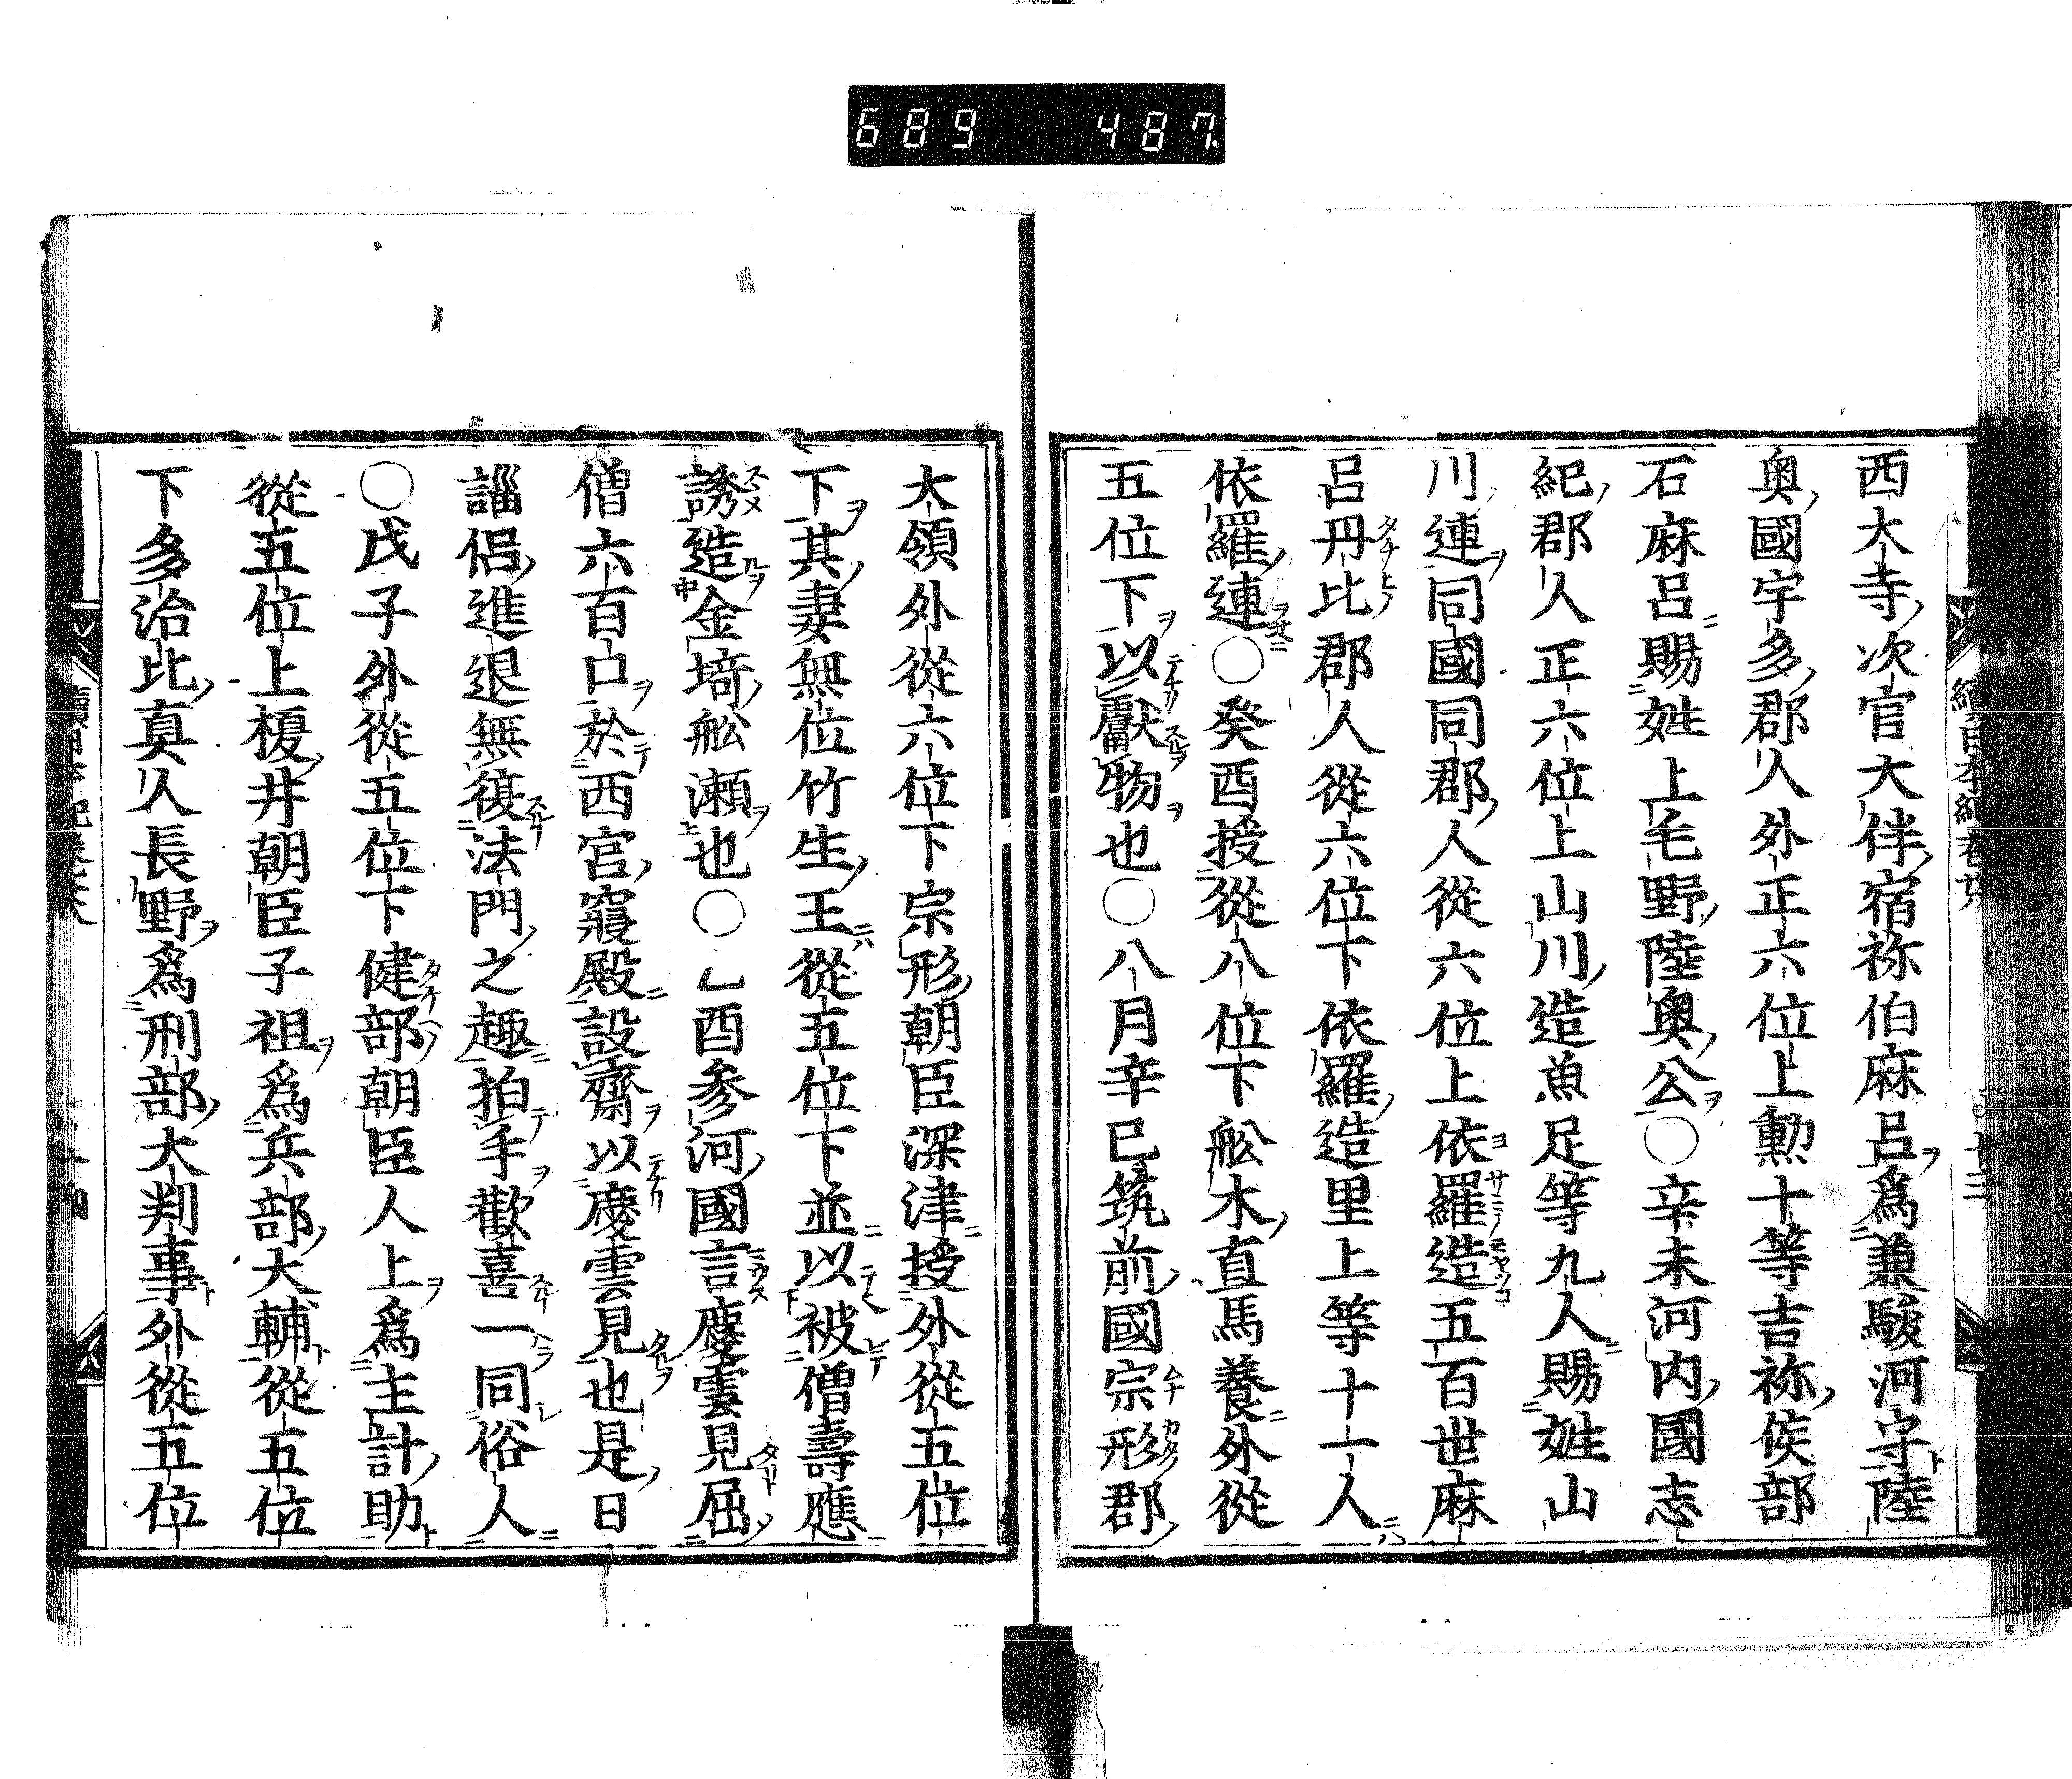 689 487
西大寺次官大伴宿祢伯麻呂爲兼駿河守陸
奥國宇多郡人外正六位上勲十等吉祢侯部
石麻呂賜姓上毛野陸奥公○辛未河内國志
紀郡人正六位上山川造魚足等九人賜姓山
川連同國同郡人從六位上依羅造五百世麻
呂丹比郡人從六位下依羅造里上等十一人
依羅連○癸酉授從八位下舩木直馬養外從
五位下以獻物也○八月辛巳筑前國宗形郡
大領外從六位下宗形朝臣深津授外從五位
下其妻無位竹生王從五位下並以被僧壽應
誘造金埼舩瀬也○乙酉参河國言慶雲見屈
僧六百口於西宮寢殿設齋以慶雲見也是日
緇侶進退無復法門之趣拍手歡喜一同俗人
○戊子外從五位下健部朝臣人上爲主計助
從五位上榎井朝臣子祖爲兵部大輔從五位
下多治比真人長野爲刑部大判事外從五位